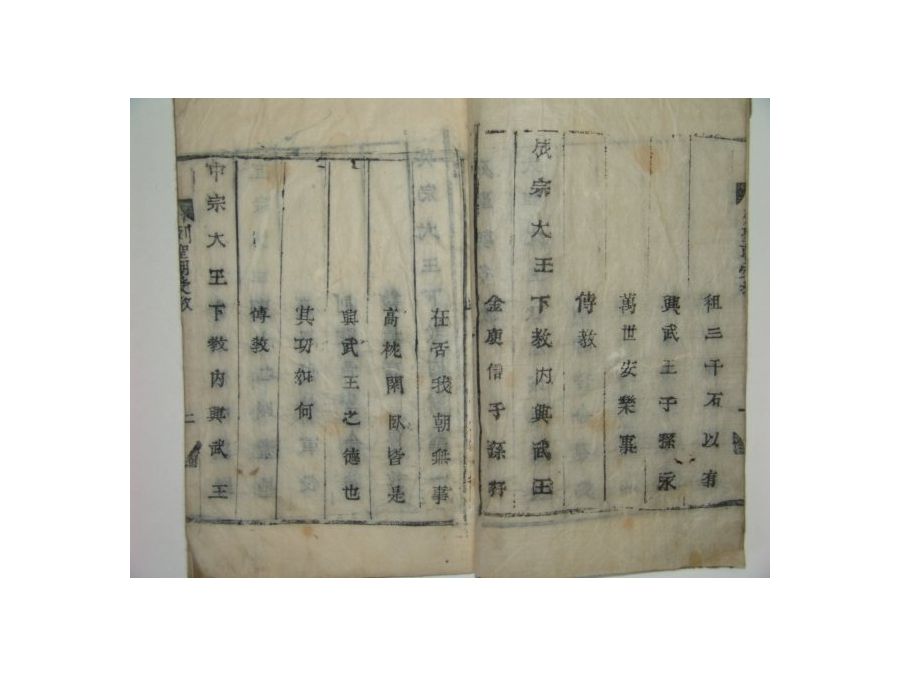 租三千石以有
興武王子孫永
萬世安樂事
傳教
成宗大王下教內興武王
金庾信子孫好
在否我朝無事
高枕閑臥皆是
興武王之德也
其功如何
傳教
中宗大王下教內興武王
列聖朝受教
二